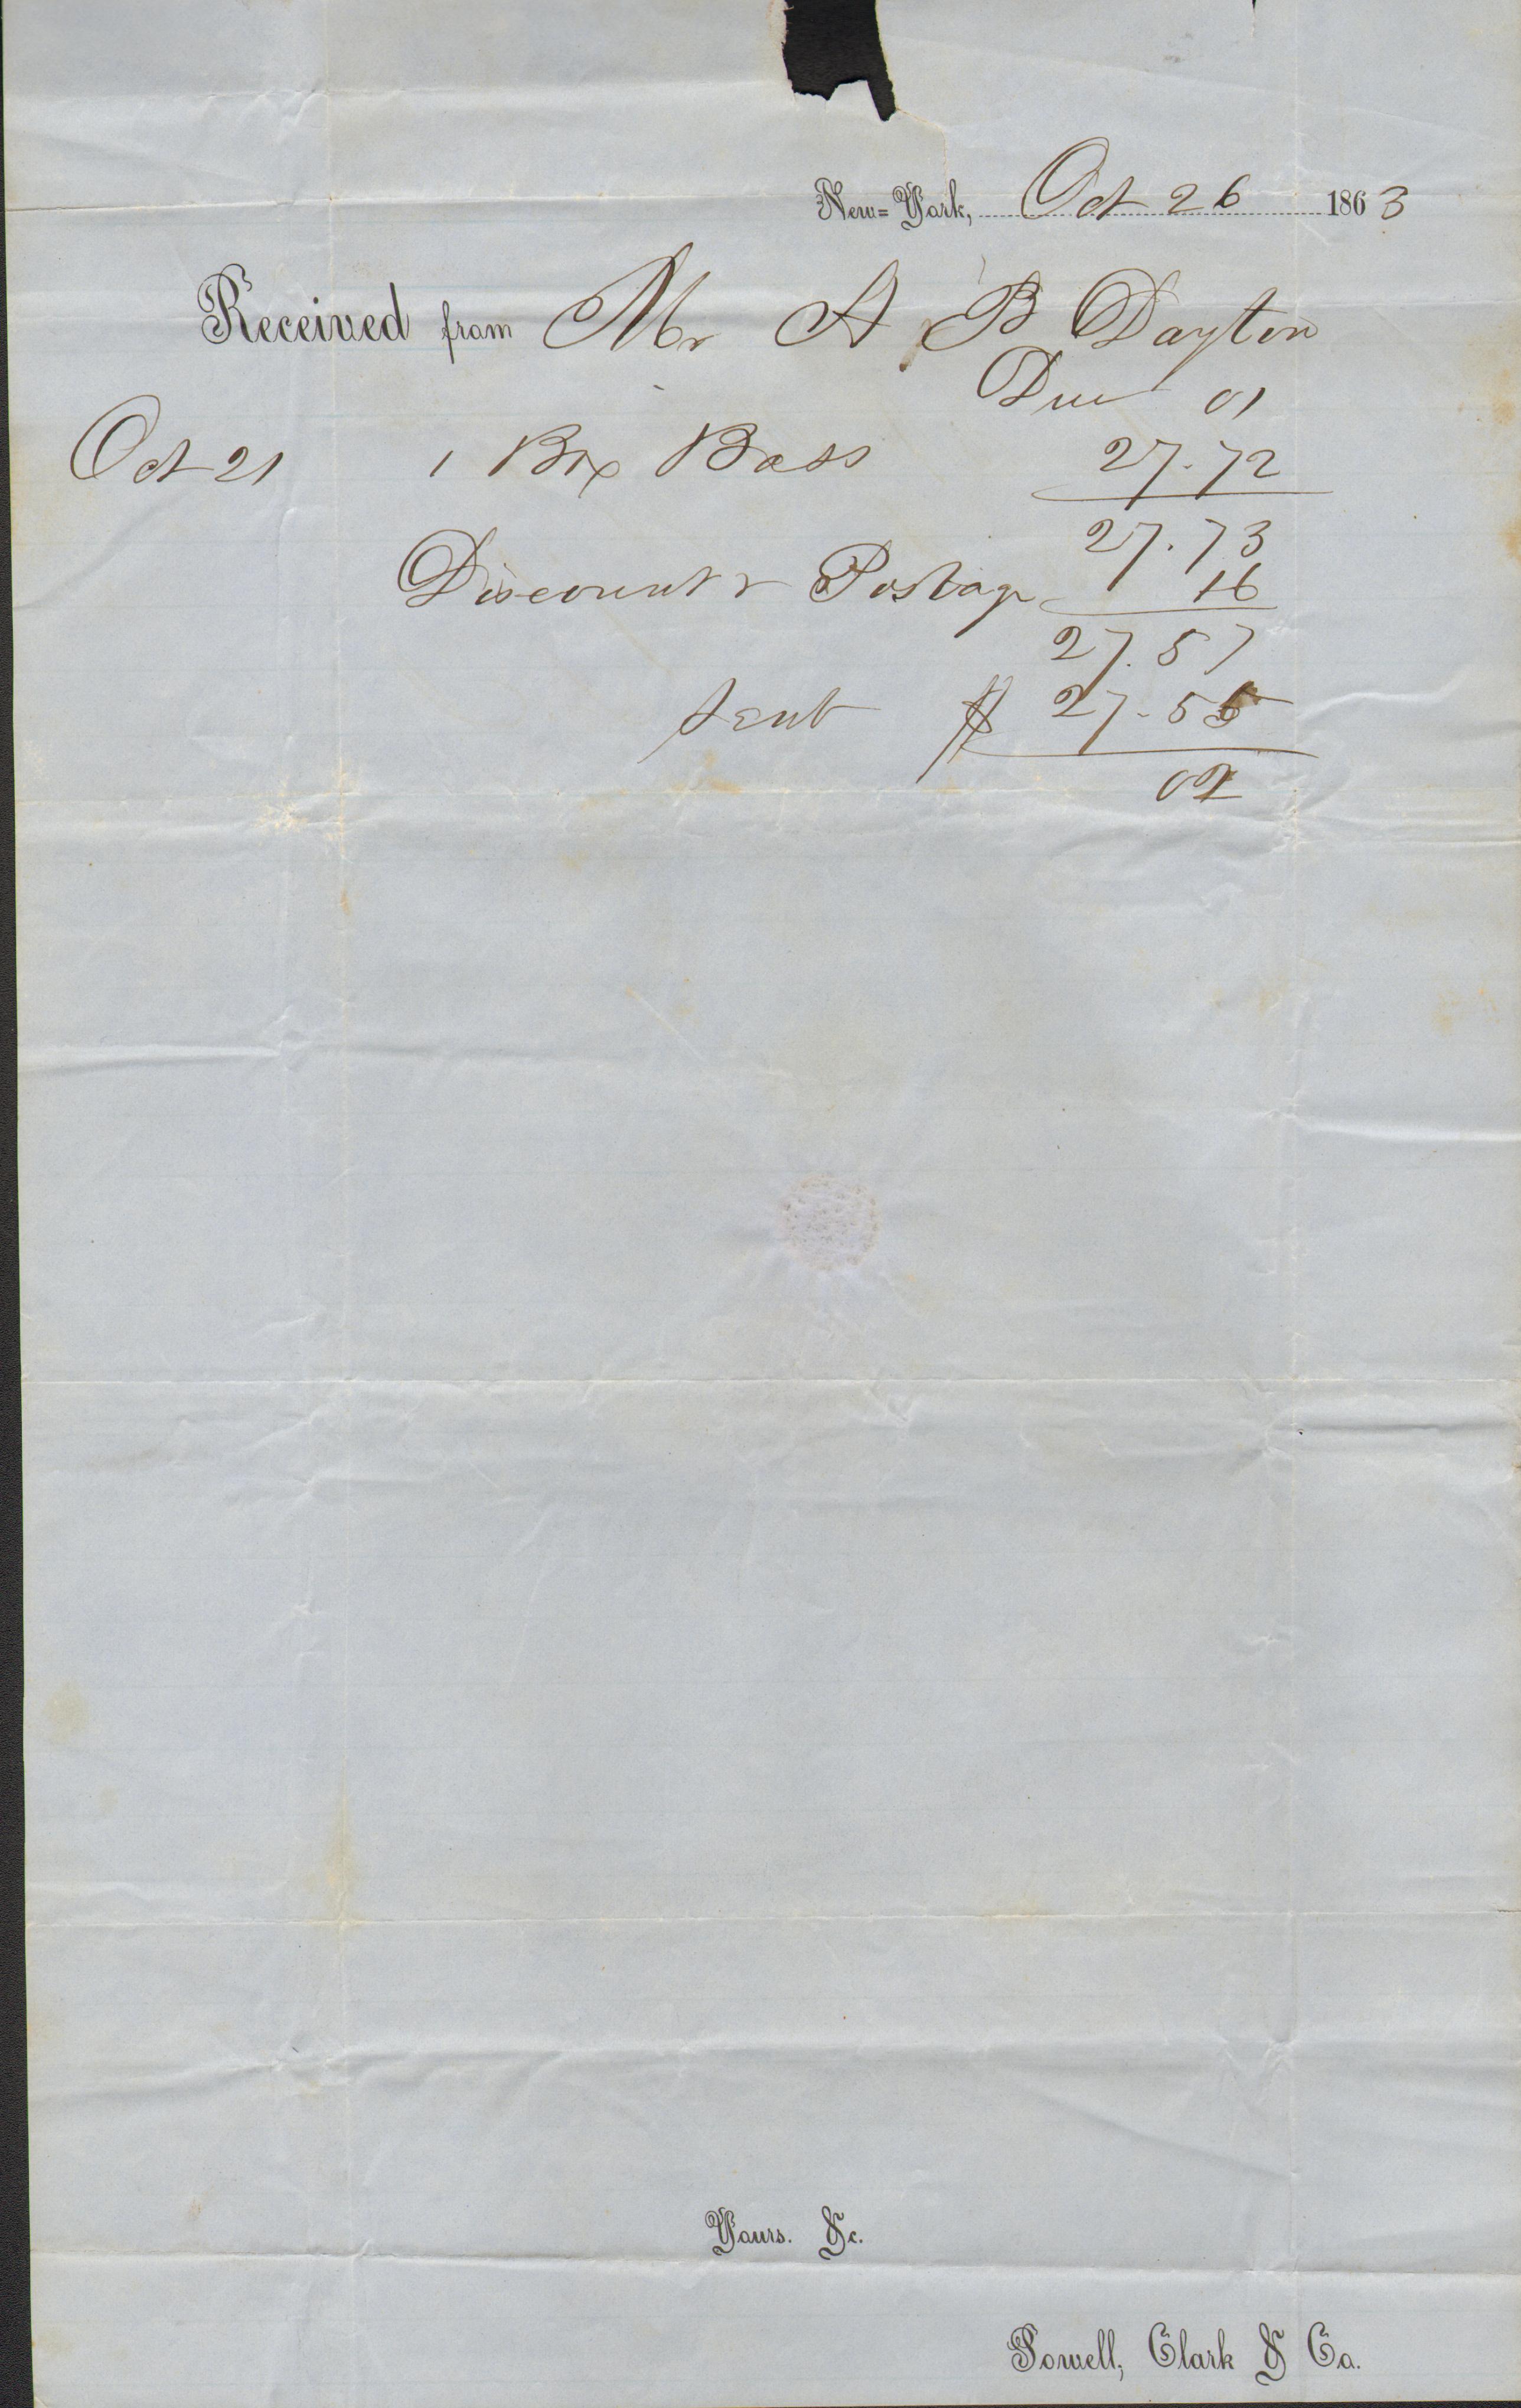 New=York, Oct 26 1863
Received from Mr A B Dayton
Due 01
Oct 21 1 Box Bass 27.72
27.73
Discount & Postage 16
27.57
Sent $ 27.55
02
Yours. &c.
Powell, Clark & Co.